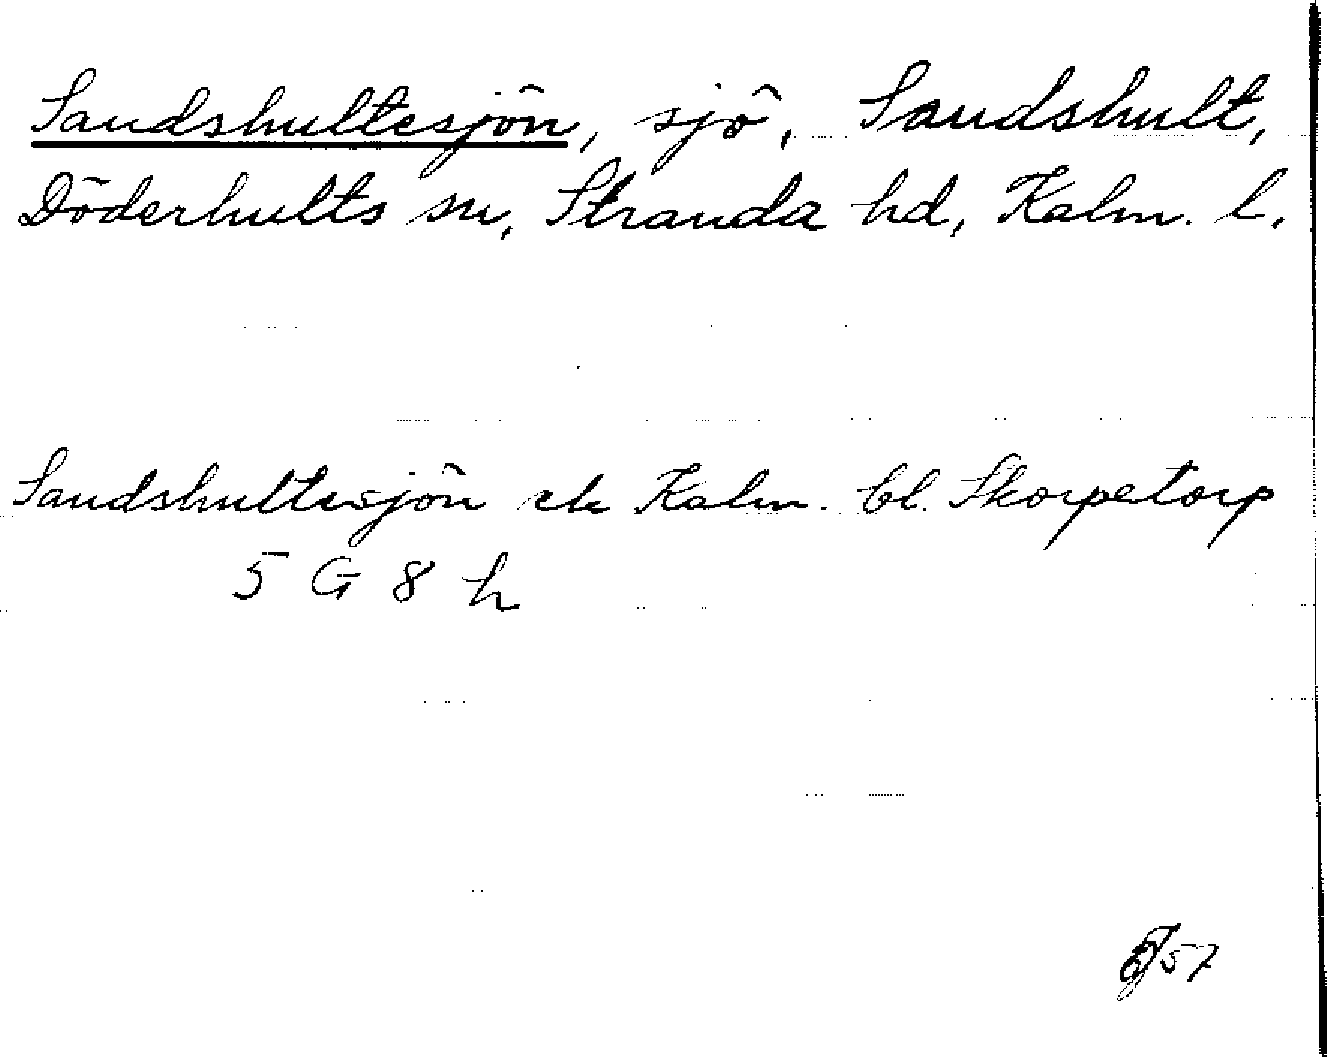 Sandshultesjön, sjö, Sandshult,
Döderhults sn, Stranda hd, Kalm. l.
Sandshultesjön ek Kalm. bl. Skorpetorp
5 G 8 h
57